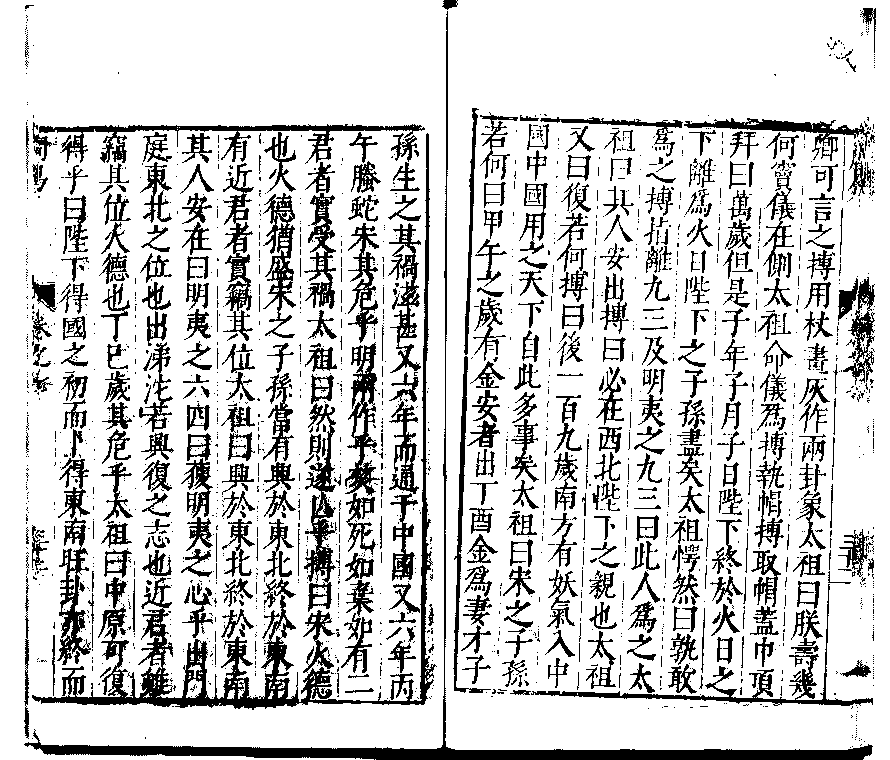 卿可言之摶用杖畫灰作兩卦象太祖曰朕壽幾
何竇儀在側太祖命儀爲摶執帽摶取帽蓋巾頂
拜曰萬歲但是子年子月子日陛下終於火日之
下離爲火日陛下之子孫盡矣太祖愕然曰孰敢
爲之摶指離九三及明夷之九三曰此人爲之太
祖曰其人安出摶曰必在西北陛下之親也太祖
又曰復若何摶曰後一百九歲南方有妖氣入中
國中國用之天下自此多事矣太祖曰宋之子孫
若何曰甲午之歲有金安者出丁酉金爲妻才子
孫生之其禍滋甚又六年而通于中國又六年丙
午騰蛇宋其危乎明兩作乎突如死如棄如有二
君者實受其禍太祖曰然則遂亾乎摶曰宋火德
也火德猶盛宋之子孫當有興於東北終於東南
有近君者實竊其位太祖曰興於東北終於東南
其人安在曰明夷之六四曰獲明夷之心乎出門
庭東北之位也出涕沱若興復之志也近君者離
竊其位火德也丁巳歲其危乎太祖曰中原可復
得乎曰陛下得國之初而卜得東南旺卦亦終而